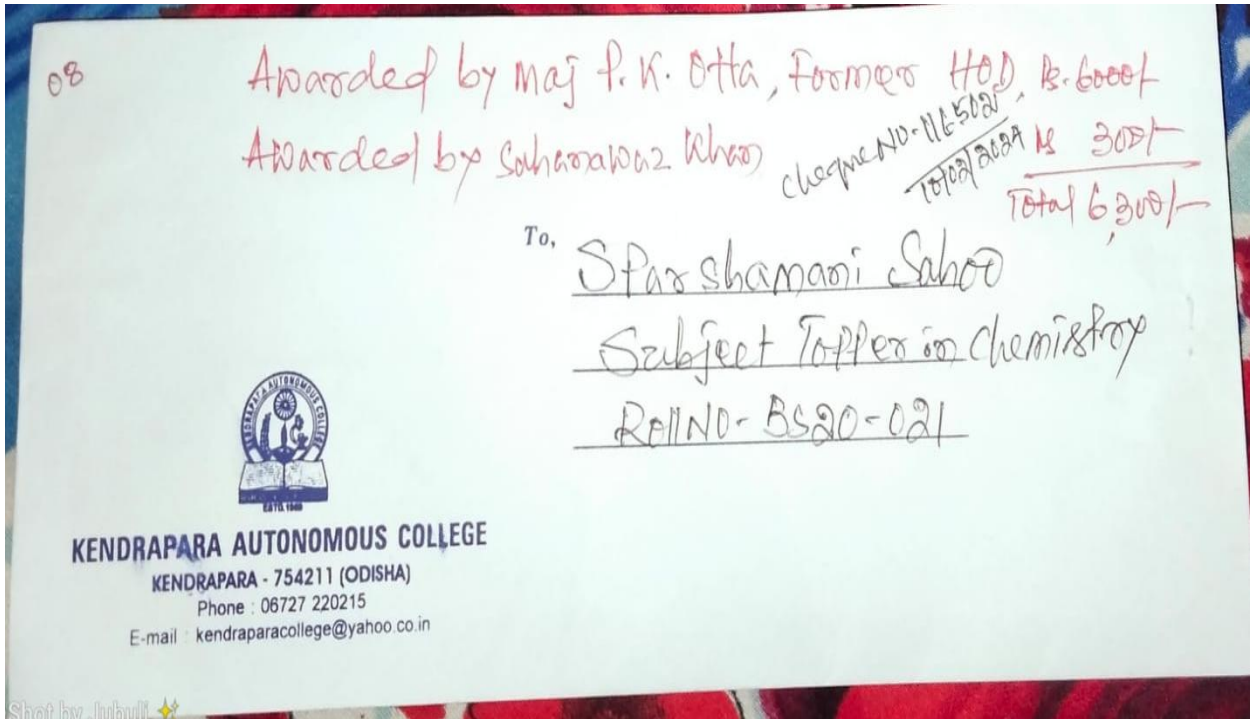 08
Awarded by Maj P. K. Otta, Former HOD, Rs. 6000/-
Awarded by Sahanawaz Khan
Rs 300/-
Total 6,300/-
cheque NO - 116502
10/02/2024
To,
Sparshamani Sahoo
Subject Topper in Chemistry
Roll NO - BS20-021
KENDRAPARA AUTONOMOUS COLLEGE
ESTD. 1959
KENDRAPARA AUTONOMOUS COLLEGE
KENDRAPARA - 754211 (ODISHA)
Phone : 06727 220215
E-mail : kendraparacollege@yahoo.co.in
Shot by Jubuli